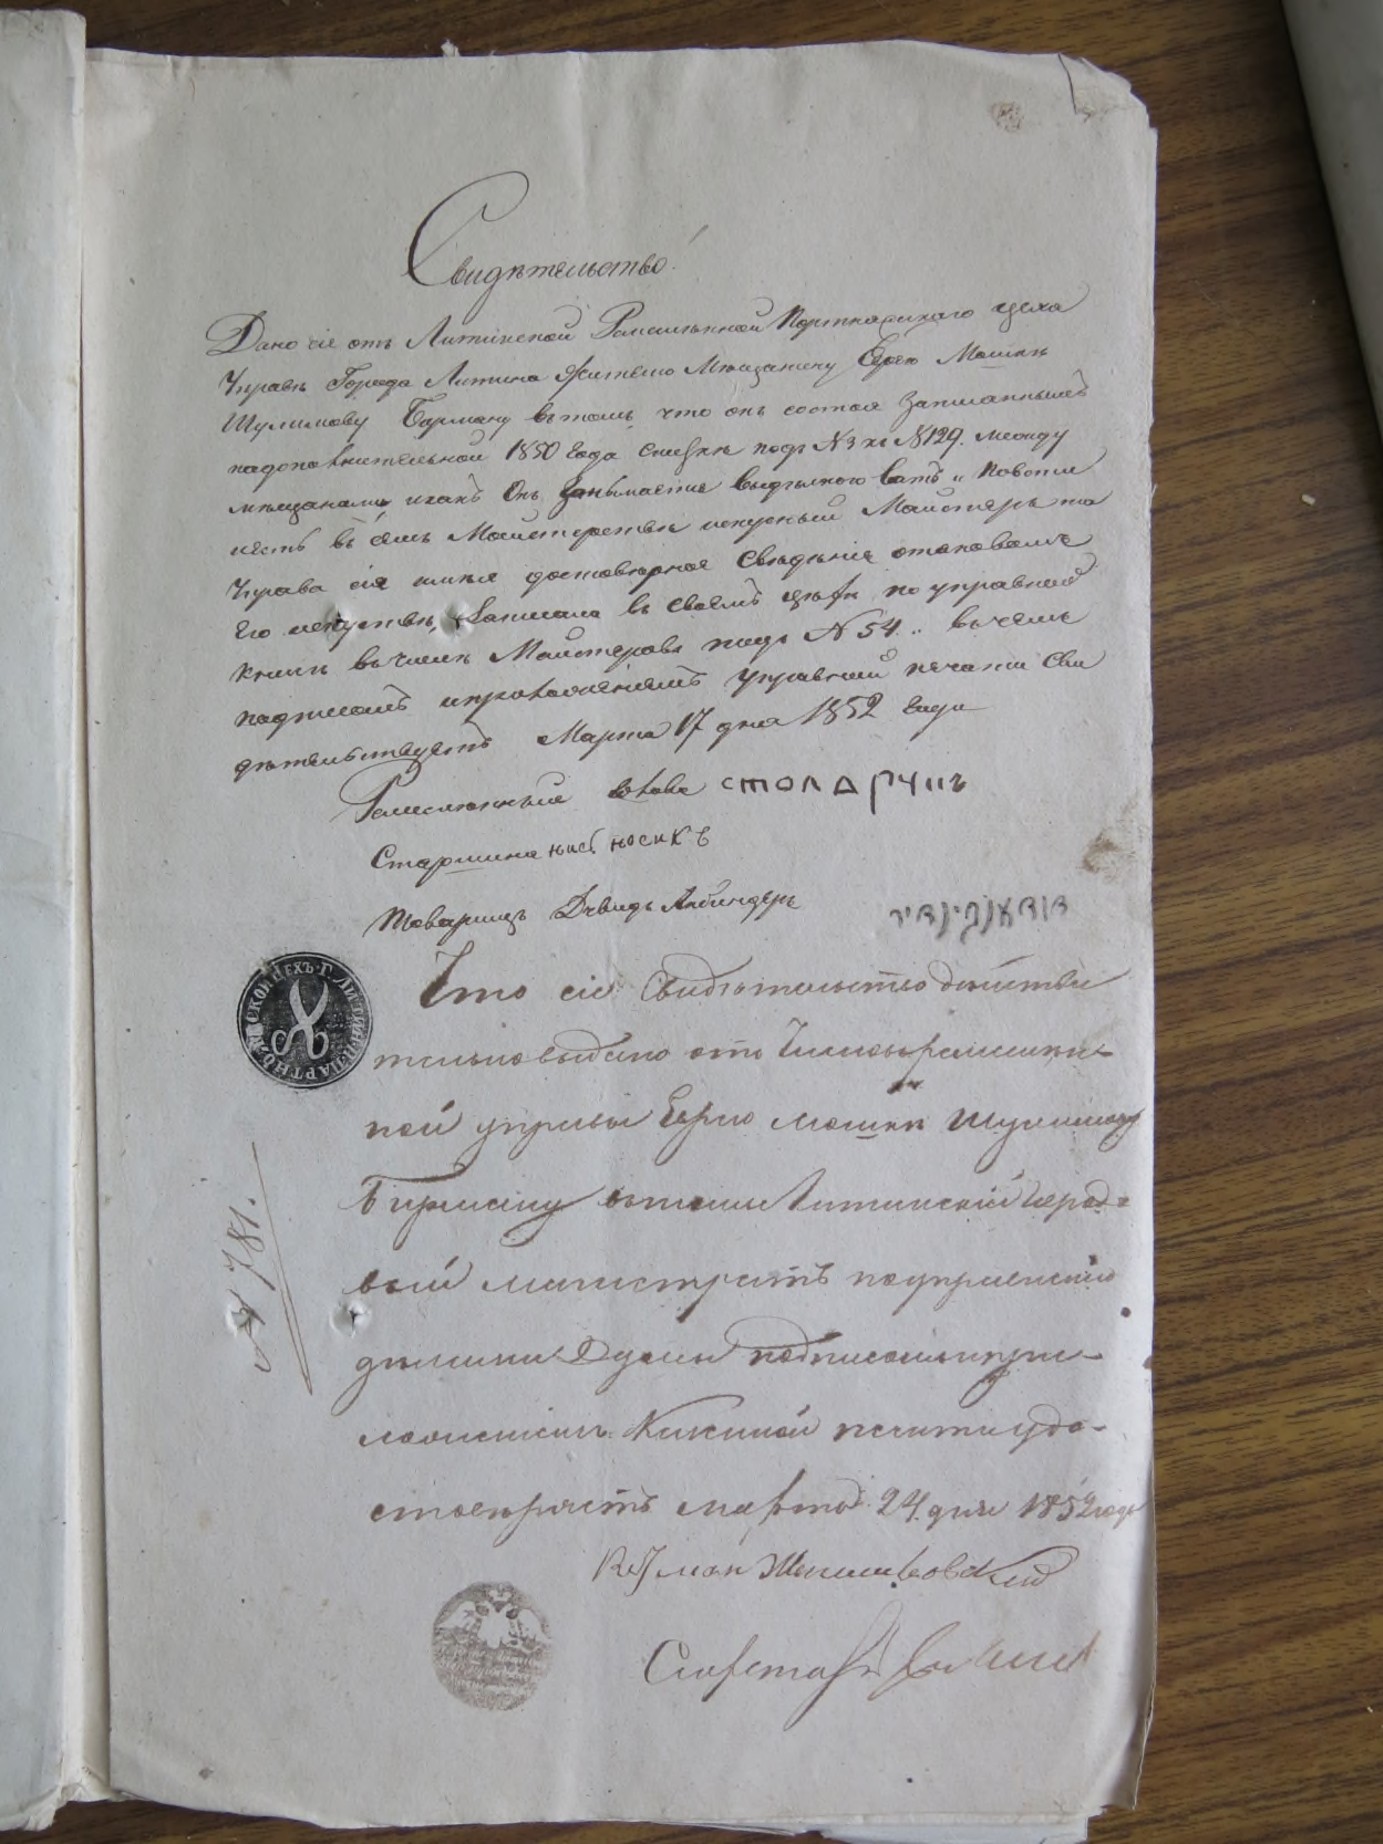 Свидѣтельство.
Дано сіе отъ Литинской Ремесленной Портнаскаго цеха
Управы Города Литина Жителю Мѣщанину Еврею Мошкѣ
Шулимову Берману въ томъ, что онъ состоя Записаннымъ
подополнительной 1850 года Сказкѣ подъ №3 хъ №129. между
мѣщанами, и какъ Онъ Занымается выдѣлкою ватъ и
честь въ семъ Майстерствѣ искусный Майстеръ то
Управа сія имѣя достовѣрное Свѣдѣніе отаковомъ
Его искуствѣ, Записала въ Своемъ цехѣ по управной
книгѣ въ числѣ Майстеровъ подъ №54. въ чемъ
подписомъ иприложеніемъ управной печати Сви
дѣтельствуетъ Марта 17 дня 1852 года
Ремесленный Голова столдрчнъ
Старшина носикъ
Товарищъ Давидъ Лібиндеръ
ЦЕХЪ Г. ЛИТИНА
Что сіе Свидѣтельство дѣйстви
тельно выдано отъ Ремеслен-
ной управы Еврею Мошкѣ Шулимову
Берману въ томъ Литинскій Город-
вый магистратъ поуправленію
дѣлами Думы подписомъ ипри-
ложеніемъ Казенной печати удо-
стоверяетъ марта 24 дня 1852 года
№ 781.